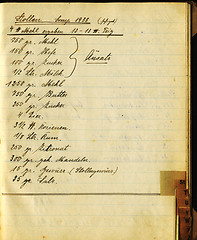 Stollen
4 # Mehl ergeben 12-13 # Teig
750 gr. Mehl
150 gr. Hefe
100 gr. Zucker
1/2 Ltr. Milch
Ansatz
1250 gr. Mehl
750 gr. Butter
250 gr. Zucker
4 Eier
3 1/2 # Korienen
1/8 Ltr. Rum
250 gr. Zitronat
300 gr. Mandeln
15 gr. Gewürz (Stollengewürz)
25 gr. Salz